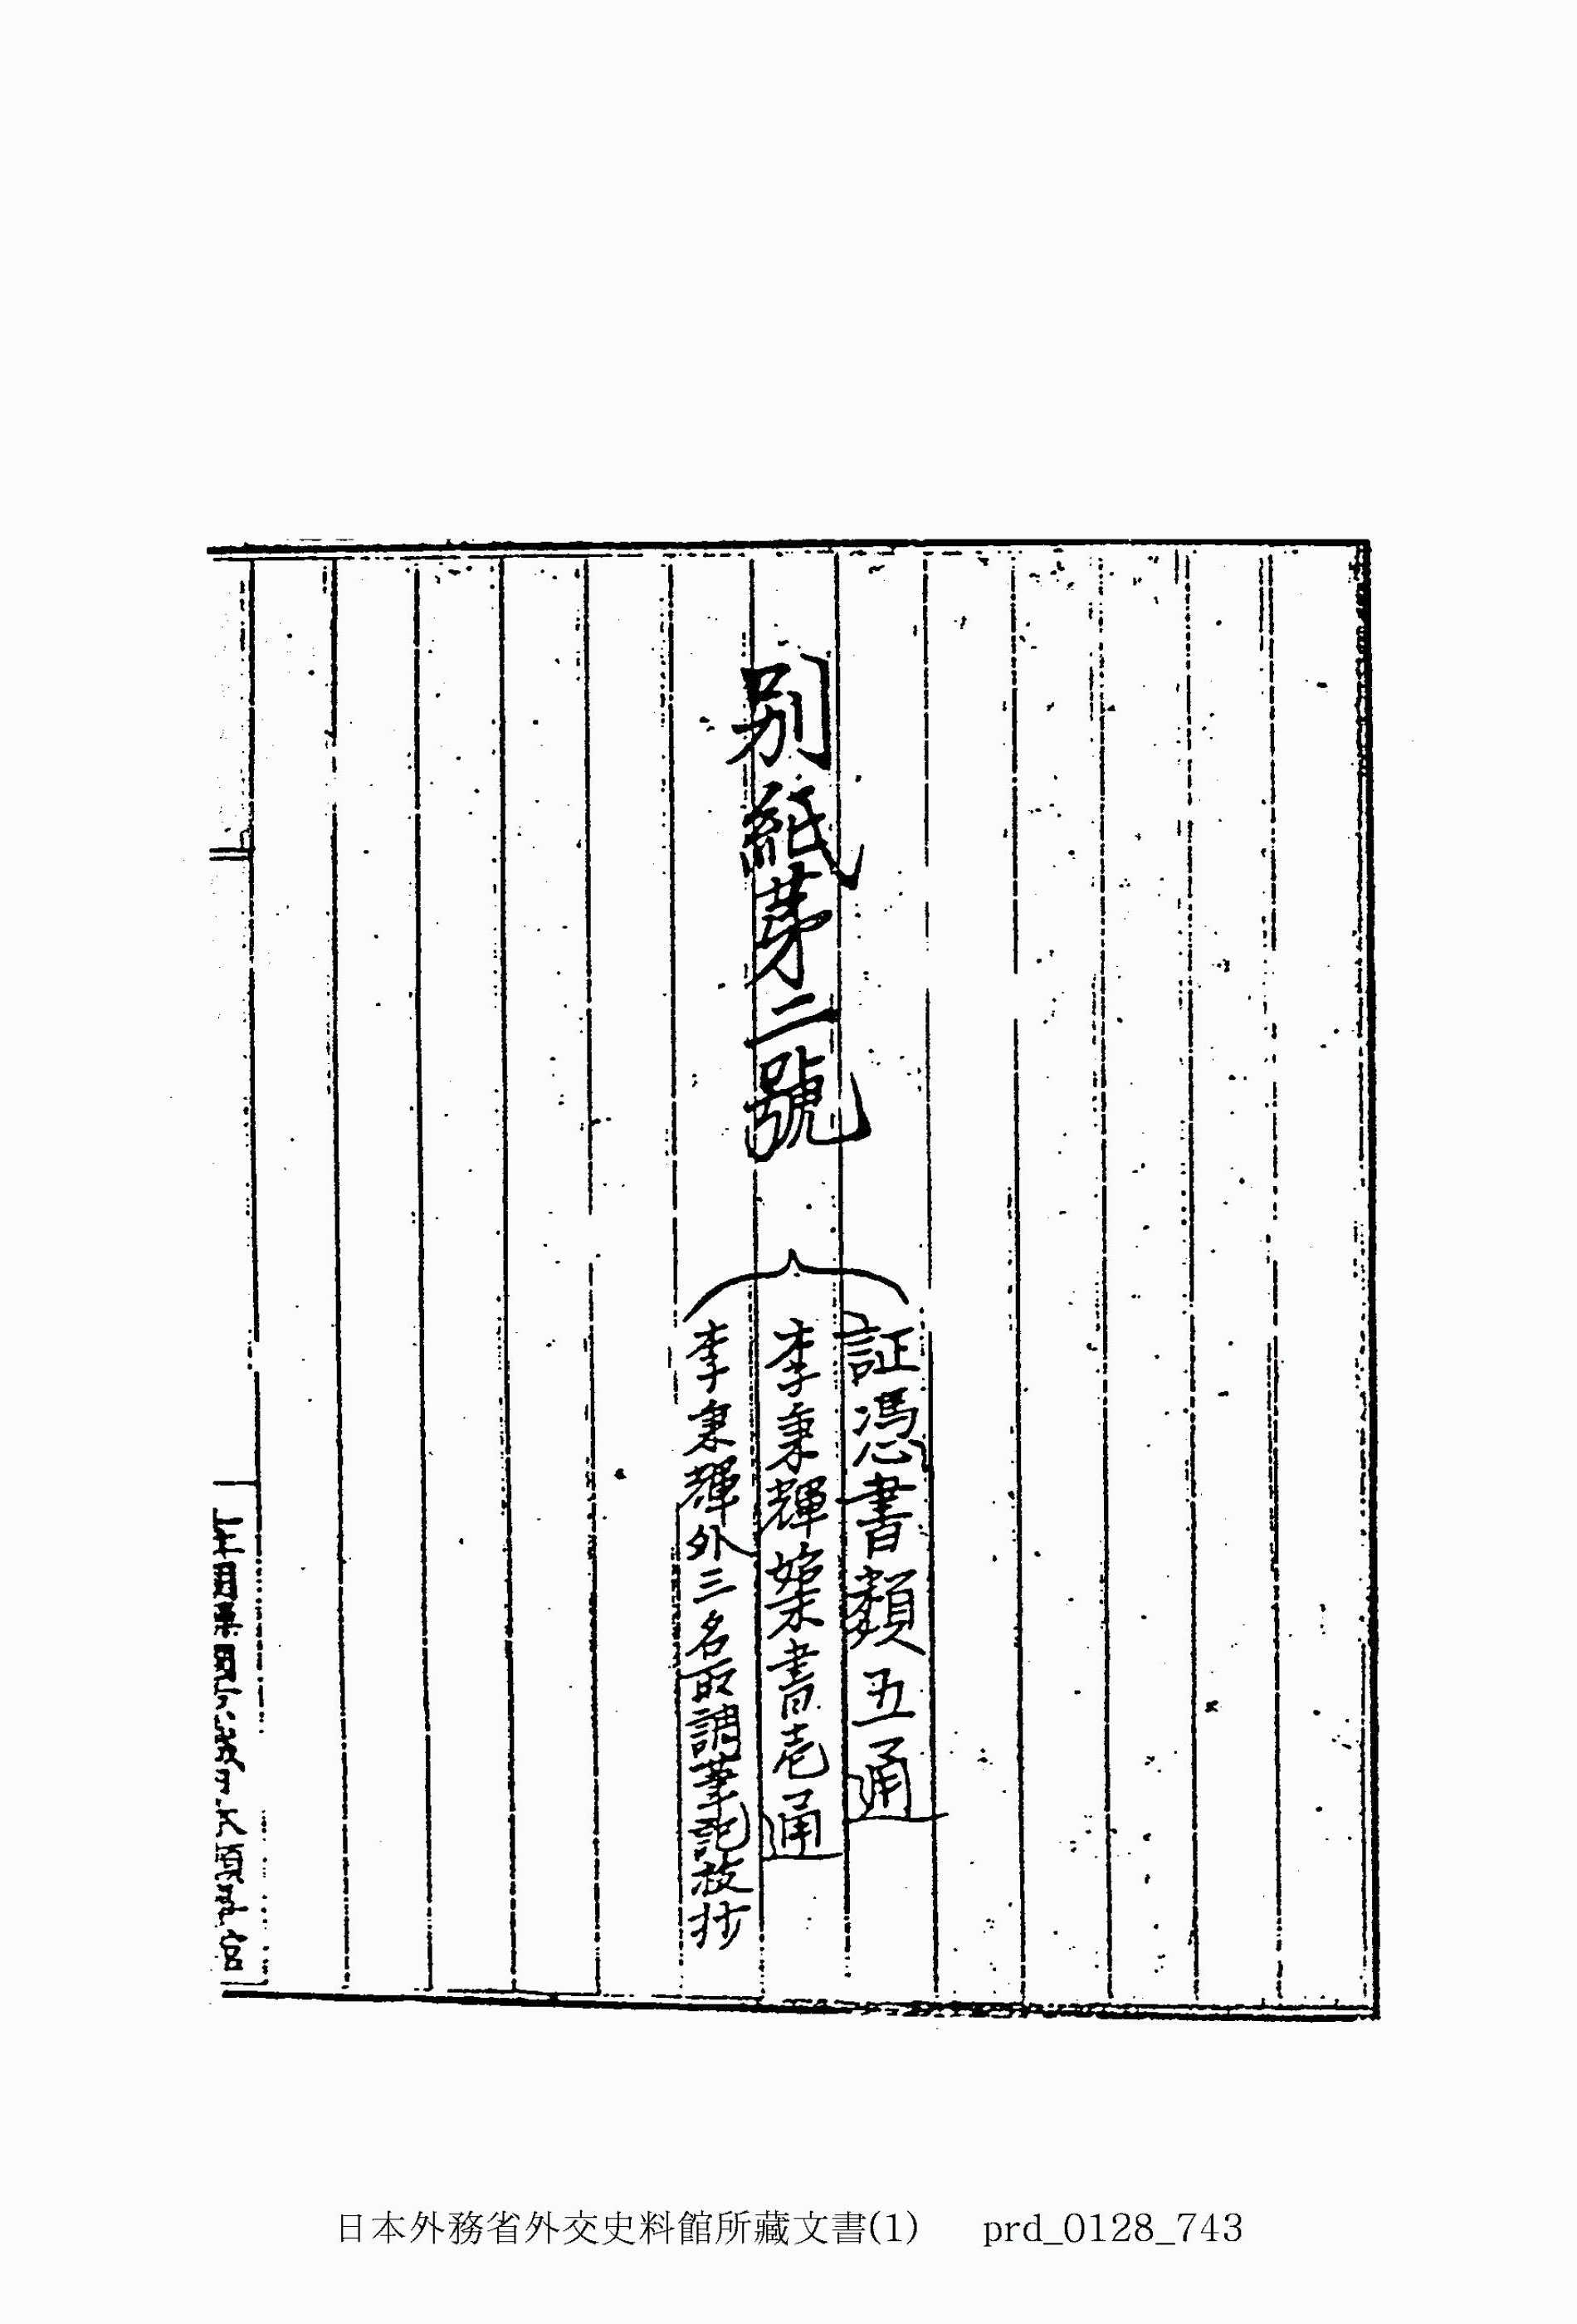 別紙第二號
証憑書類五通
李秉輝築書壱通
李秉輝外三名取調筆記抜抄
日本外務省外交史料館所藏文書(1) prd_0128_743